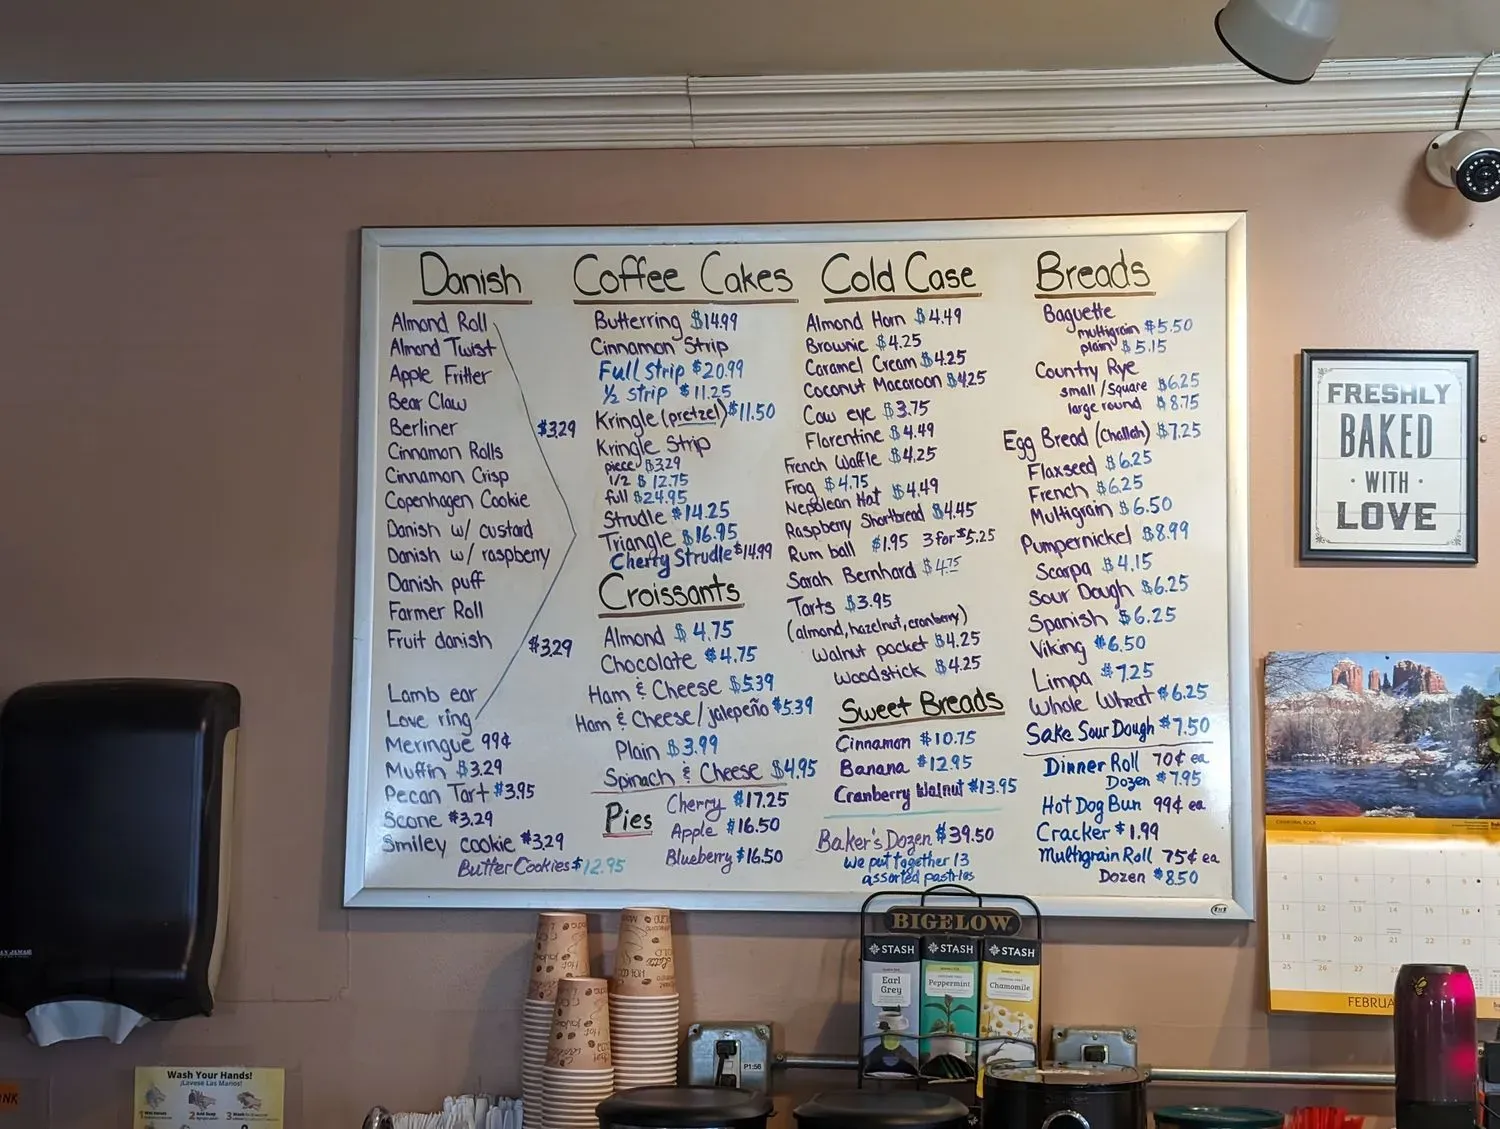 Danish
Almond Roll
Almond Twist
Apple Fritter
Bear Claw
Berliner $3.29
Cinnamon Rolls
Cinnamon Crisp
Copenhagen Cookie
Danish w/ custard
Danish w/ raspberry
Danish puff
Farmer Roll
Fruit danish $3.29
Lamb ear
Love ring
Meringue 99¢
Muffin $3.29
Pecan Tart $3.95
Scone $3.29
Smiley cookie $3.29
Butter Cookies $12.95
Coffee Cakes
Butterring $14.99
Cinnamon Strip
Full strip $20.99
½ strip $11.25
Kringle (pretzel) $11.50
Kringle Strip
piece $3.29
1/2 $12.75
full $24.95
Strudle $14.25
Triangle $16.95
Cherry Strudle $14.99
Croissants
Almond $4.75
Chocolate $4.75
Ham & Cheese $5.39
Ham & Cheese/jalepeño $5.39
Plain $3.99
Spinach & Cheese $4.95
Pies
Cherry $17.25
Apple $16.50
Blueberry $16.50
Cold Case
Almond Horn $4.49
Brownie $4.25
Caramel Cream $4.25
Coconut Macaroon $4.25
Cow eye $3.75
Florentine $4.49
French Waffle $4.25
Frog $4.75
Nepolean Hat $4.49
Raspberry Shortbread $4.45
Rum ball $1.95 3 for $5.25
Sarah Bernhard $4.75
Tarts $3.95
(almond, hazelnut, cranberry)
Walnut pocket $4.25
Woodstick $4.25
Sweet Breads
Cinnamon $10.75
Banana $12.95
Cranberry Walnut $13.95
Baker's Dozen $39.50
we put together 13
assorted pastries
Breads
Baguette
multigrain $5.50
plain $5.15
Country Rye
small/square $6.25
large round $8.75
Egg Bread (Challah) $7.25
Flaxseed $6.25
French $6.25
Multigrain $6.50
Pumpernickel $8.99
Scarpa $4.15
Sour Dough $6.25
Spanish $6.25
Viking $6.50
Limpa $7.25
Whole Wheat $6.25
Sake Sour Dough $7.50
Dinner Roll 70¢ ea
Dozen $7.95
Hot Dog Bun 99¢ ea
Cracker $1.99
Multigrain Roll 75¢ ea
Dozen $8.50
FRESHLY
BAKED
· WITH ·
LOVE
BIGELOW
STASH
STASH
STASH
Earl
Grey
Peppermint
Chamomile
P1:56
Wash Your Hands!
¡Lávese Las Manos!
4 5 6 7 8 9
11 12 13 14 15 16
18 19 20 21 22
25 26 27 28
FEBRUA